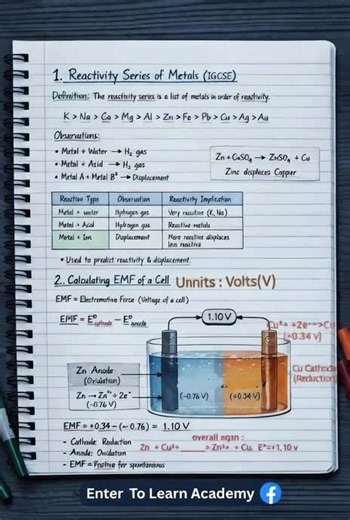 1. Reactivity Series of Metals (IGCSE)
Definition: The reactivity series is a list of metals in order of reactivity.
K > Na > Ca > Mg > Al > Zn > Fe > Pb > Cu > Ag > Au
Observations:
• Metal + Water → H₂ gas
• Metal + Acid → H₂ gas
• Metal A + Metal B⁺ → Displacement
Zn + CuSO₄ → ZnSO₄ + Cu
Zinc displaces Copper
Reaction Type Observation Reactivity Implication
Metal + water Hydrogen gas Very reactive (K, Na)
Metal + Acid Hydrogen gas Reactive metals
Metal + Ion Displacement More reactive displaces less reactive
• Used to predict reactivity & displacement.
2. Calculating EMF of a Cell Unnits : Volts(V)
EMF = Electromotive Force (Voltage of a cell)
EMF = E⁰cathode – E⁰anode
1.10 V
Cu²+ +2e⁻-->Cu
(+0.34 v)
Zn Anode
(Oxidation)
Zn → Zn²⁺ + 2e⁻
(-0.76 V)
(-0.76 V)
(+0.34 V)
Cu Cathode
(Reduction)
EMF = +0.34 – (–0.76) = 1.10 V
- Cathode: Reduction
- Anode: Oxidation
- EMF = Positive for spontaneous
overall eqan :
Zn + Cu²+ ____> Zn²+ + Cu, E°=+1,10 v
Enter To Learn Academy